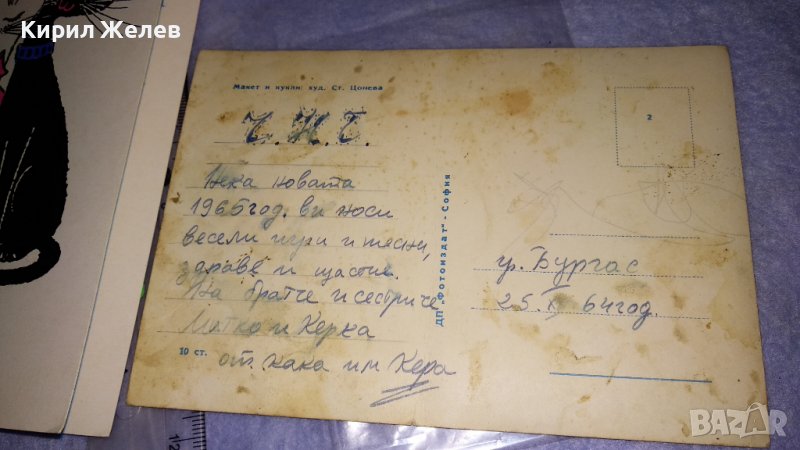 Кирил Желев
Макет и кукли: худ. Ст. Цонева
Ч. Н. Г.
Нека новата
1965 год. ви носи
весели игри и песни,
здраве и щастие.
На братче и сестриче
Митко и Керка
от кака им Кера
10 ст.
ДП „Фотоиздат" - София
2
гр. Бургас
25. XII 64 год.
BAZAR